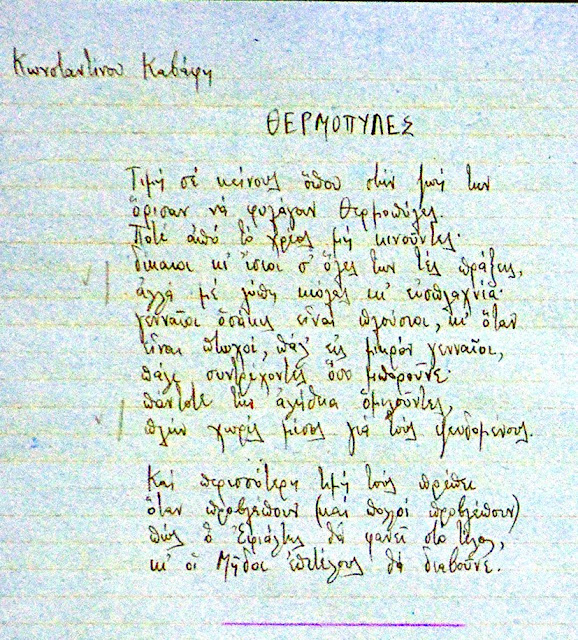 Κωνσταντίνου Καβάφη
ΘΕΡΜΟΠΥΛΕΣ
Τιμή σέ κείνους ὅπου στήν ζωή των
ὅρισαν νά φυλάγουν Θερμοπύλες.
Ποτέ ἀπό τό χρέος μή κινοῦντες·
δίκαιοι κ' ἴσιοι σ' ὅλες των τές πράξεις,
ἀλλά μέ λύπη κιόλας κ' εὐσπλαχνία·
γενναῖοι ὁσάκις εἶναι πλούσιοι, κ' ὅταν
εἶναι πτωχοί, πάλ' εἰς μικρόν γενναῖοι,
πάλι συντρέχοντες ὅσο μποροῦνε·
πάντοτε τήν ἀλήθεια ὁμιλοῦντες,
πλήν χωρίς μῖσος γιά τούς ψευδομένους.
Καί περισσότερη τιμή τούς πρέπει
ὅταν προβλέπουν (καί πολλοί προβλέπουν)
πώς ὁ Ἐφιάλτης θά φανεῖ στό τέλος,
κ' οἱ Μῆδοι ἐπιτέλους θά διαβοῦνε.